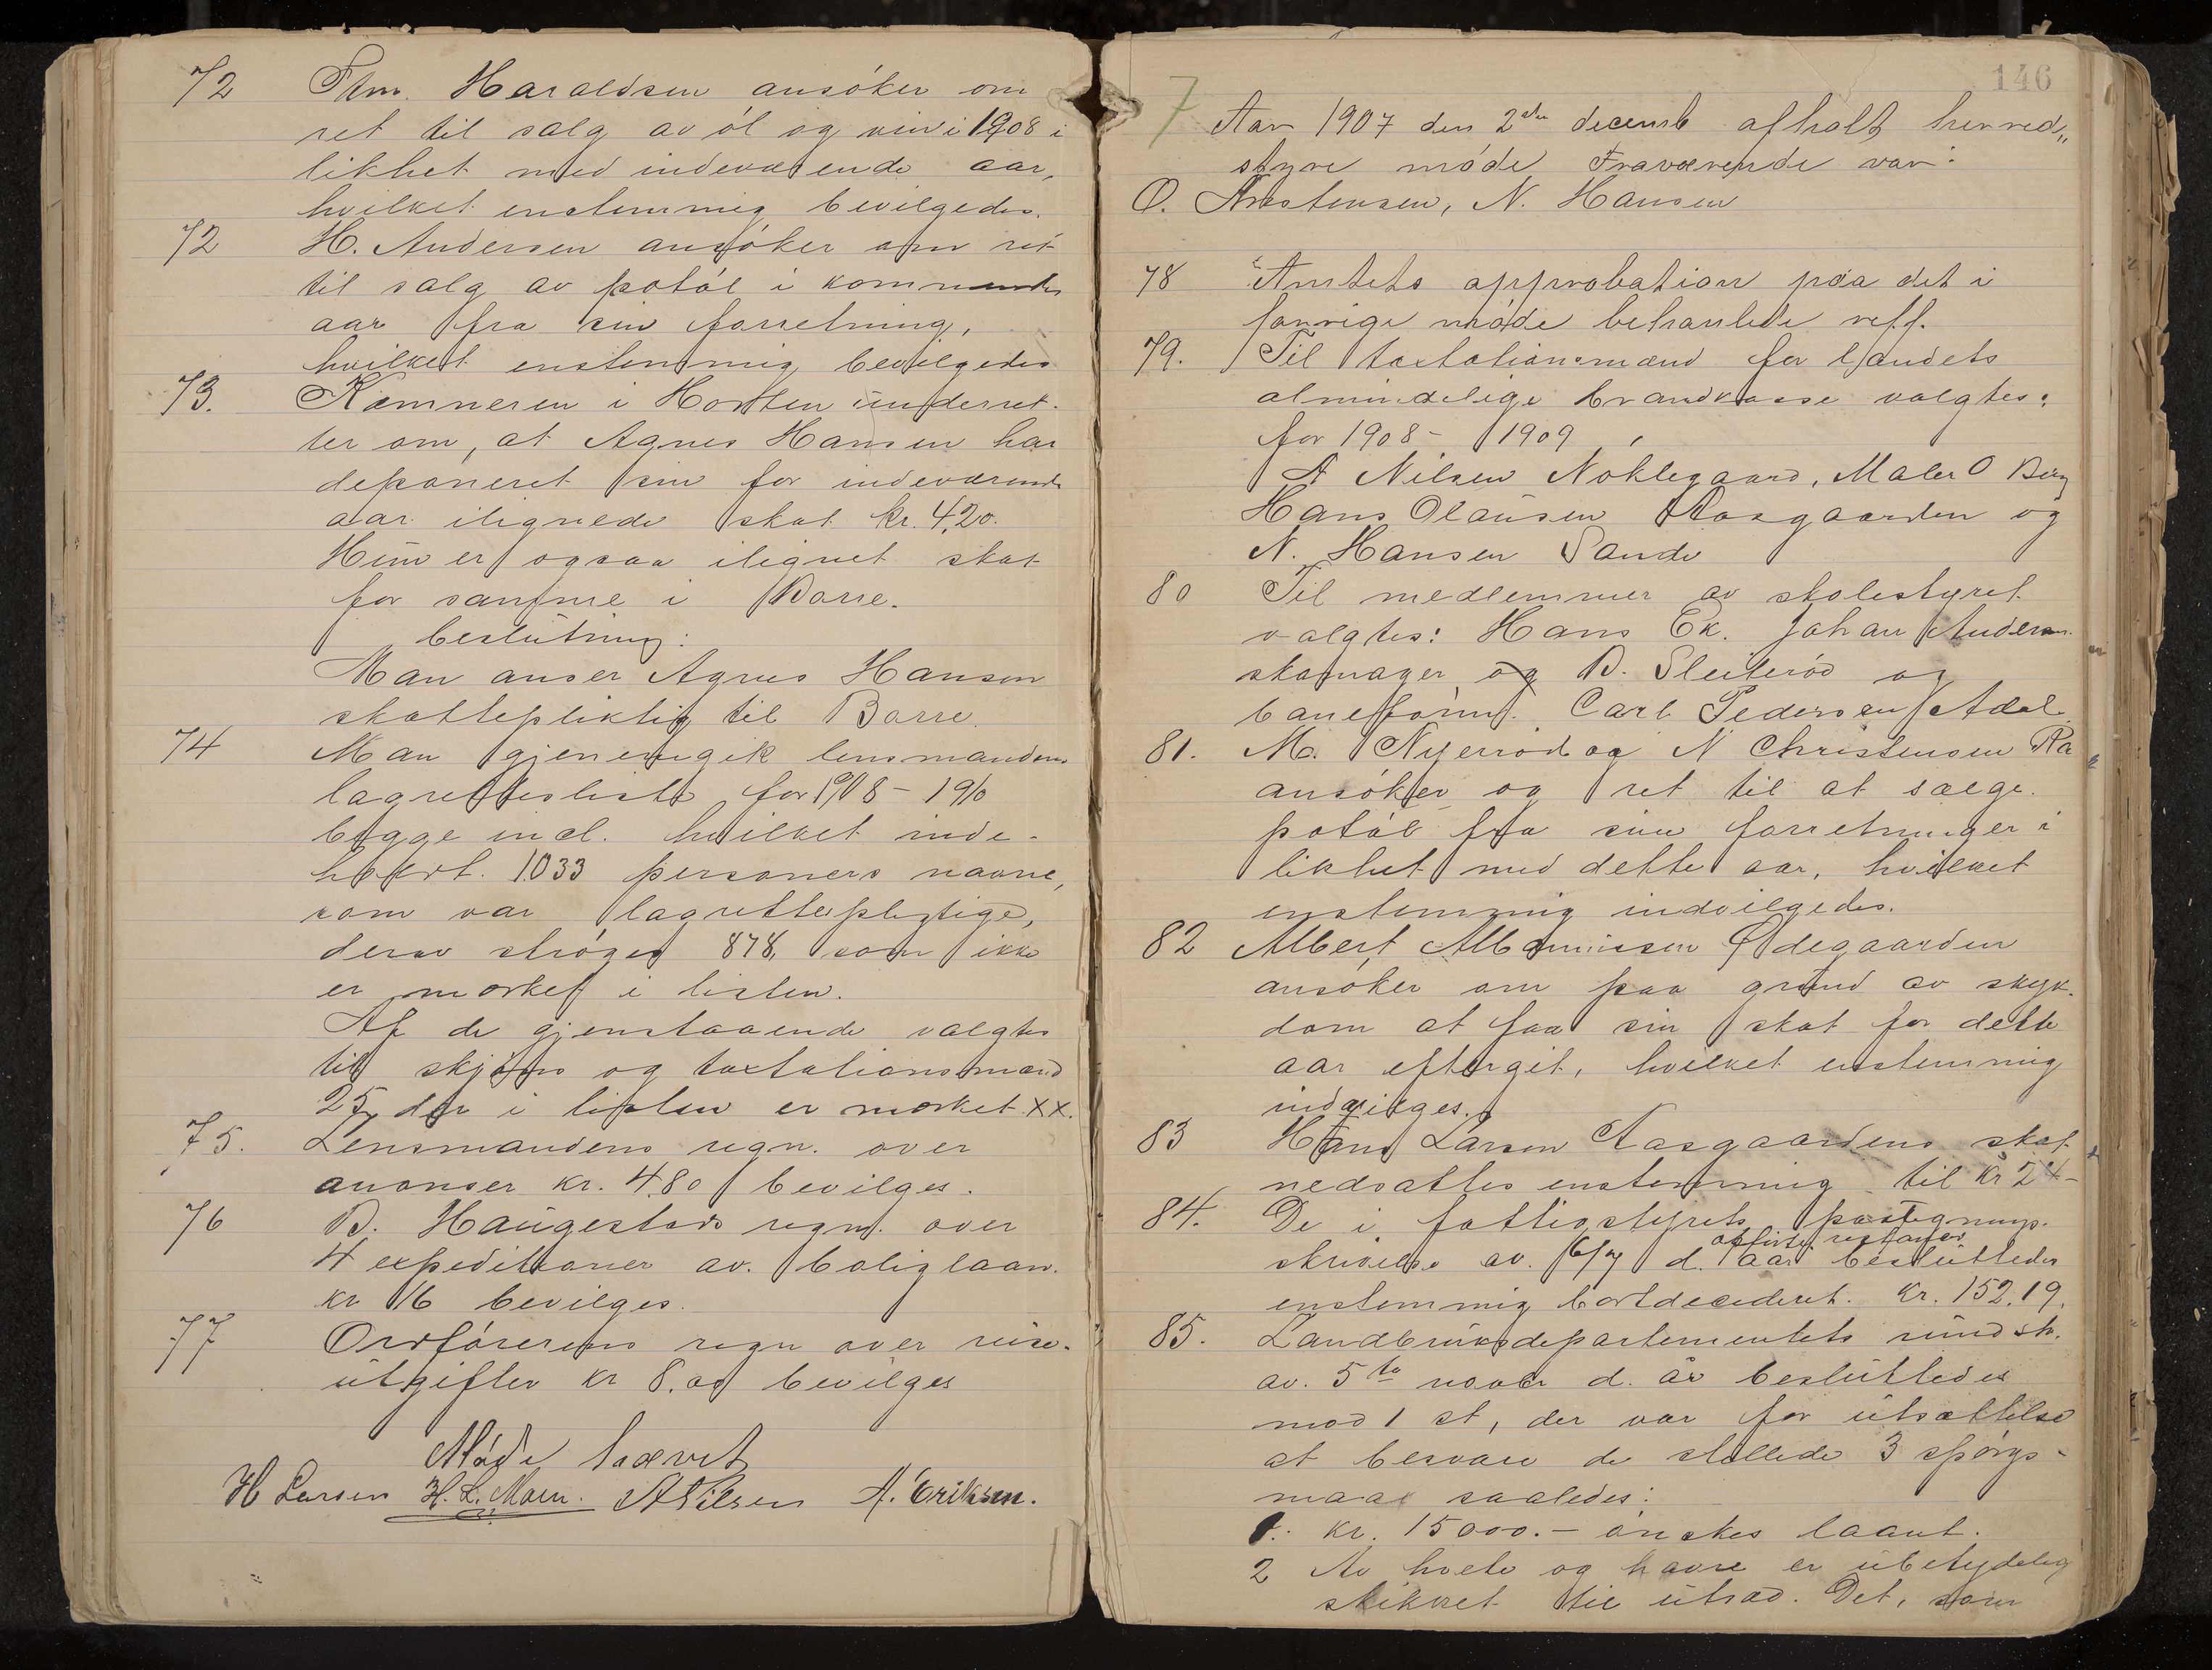 72 Fhm. Haraldsen ansöker om
ret til salg av öl og vin i 1908 i
likhet med indeværende aar,
hvilket enstemmig bevilgedes.
72 H. Andersen ansöker om ret
til salg av potöl i kommende
aar fra sin forretning,
hvilket enstemmig bevilgedes
73. Kæmneren i Horten underret-
ter om, at Agnes Hansen har
deponeret sin for indeværende
aar ilignede skat kr. 4,20.
Hun er ogsaa ilignet skat
for samme i Borre.
beslutning:
Man anser Agnes Hansen
skattepliktig til Borre.
74 Man gjenemgik lensmandens
lagretteslister for 1908 - 1910
begge incl. hvilket inde-
holdt. 1033 personers navne,
som var lagrettepligtige,
derav ströges 878, som ikke
er mærket i listen.
Af de gjenstaaende valgtes
til skjöns og taxtationsmænd
25, der i listen er mærket XX.
75. Lensmandens regn. over
anonser kr. 4.80 bevilges.
76 B. Haugestads regn. over
4 expeditioner av. boliglaan.
kr 16 bevilges.
77 Ordförerens regn over reise-
utgifter kr 8.00 bevilges
Möde hævet
H Larsen H. L. Moen. A Nilsen A. Eriksen.
146
7 Aar 1907 den 2den decemb afholdt herreds
styre möde Fraværende var:
O. Anstensen, N. Hansen
78 Amtets approbation paa det i
forrige möde behandlede reff.
79. Til taxtationsmænd for landets
almindelige brandkasse valgtes:
for 1908 - 1909,
A Nilsen Nöklegaard, Maler O Berg
Hans Olausen Aasgaarden og
N. Hansen Sande
80 Til medlemmer av skolestyret
valgtes: Hans Ek. Johan Andersen
skomager og B. Sleiteröd og
baneform. Carl Pedersen Adal
81. M. Nyerröd og N Christensen Ra
ansöker og ret til at sælge
potöl fra sine forretninger i
likhet med dette aar, hvilket
enstemmig indvilgedes.
82 Albert Albaniussen Ödegaarden
ansöker om paa grund av syk-
dom at faa sin skat for dette
aar eftergit, hvilket enstemmig
indvilges.
83 Hans Larsen Aasgaardens skat
nedsattes enstemmig til kr 24-
84. De i fattigstyrets pastegnings-
opförte restancer
skrivelse av. 6/9 d. aar besluttedes
enstemmig bortdecideret. kr. 152.19.
85. Landbruksdepartementets rundskr.
av. 5te novbr d. år besluttedes
mod 1 st, der var for utsættelse
at besvare de stillede 3 spörgs-
maal saaledes:
1. kr. 15000.- önskes laant.
2 Av hvete og havre er ubetydelig
skikket til utsæd. Det, som